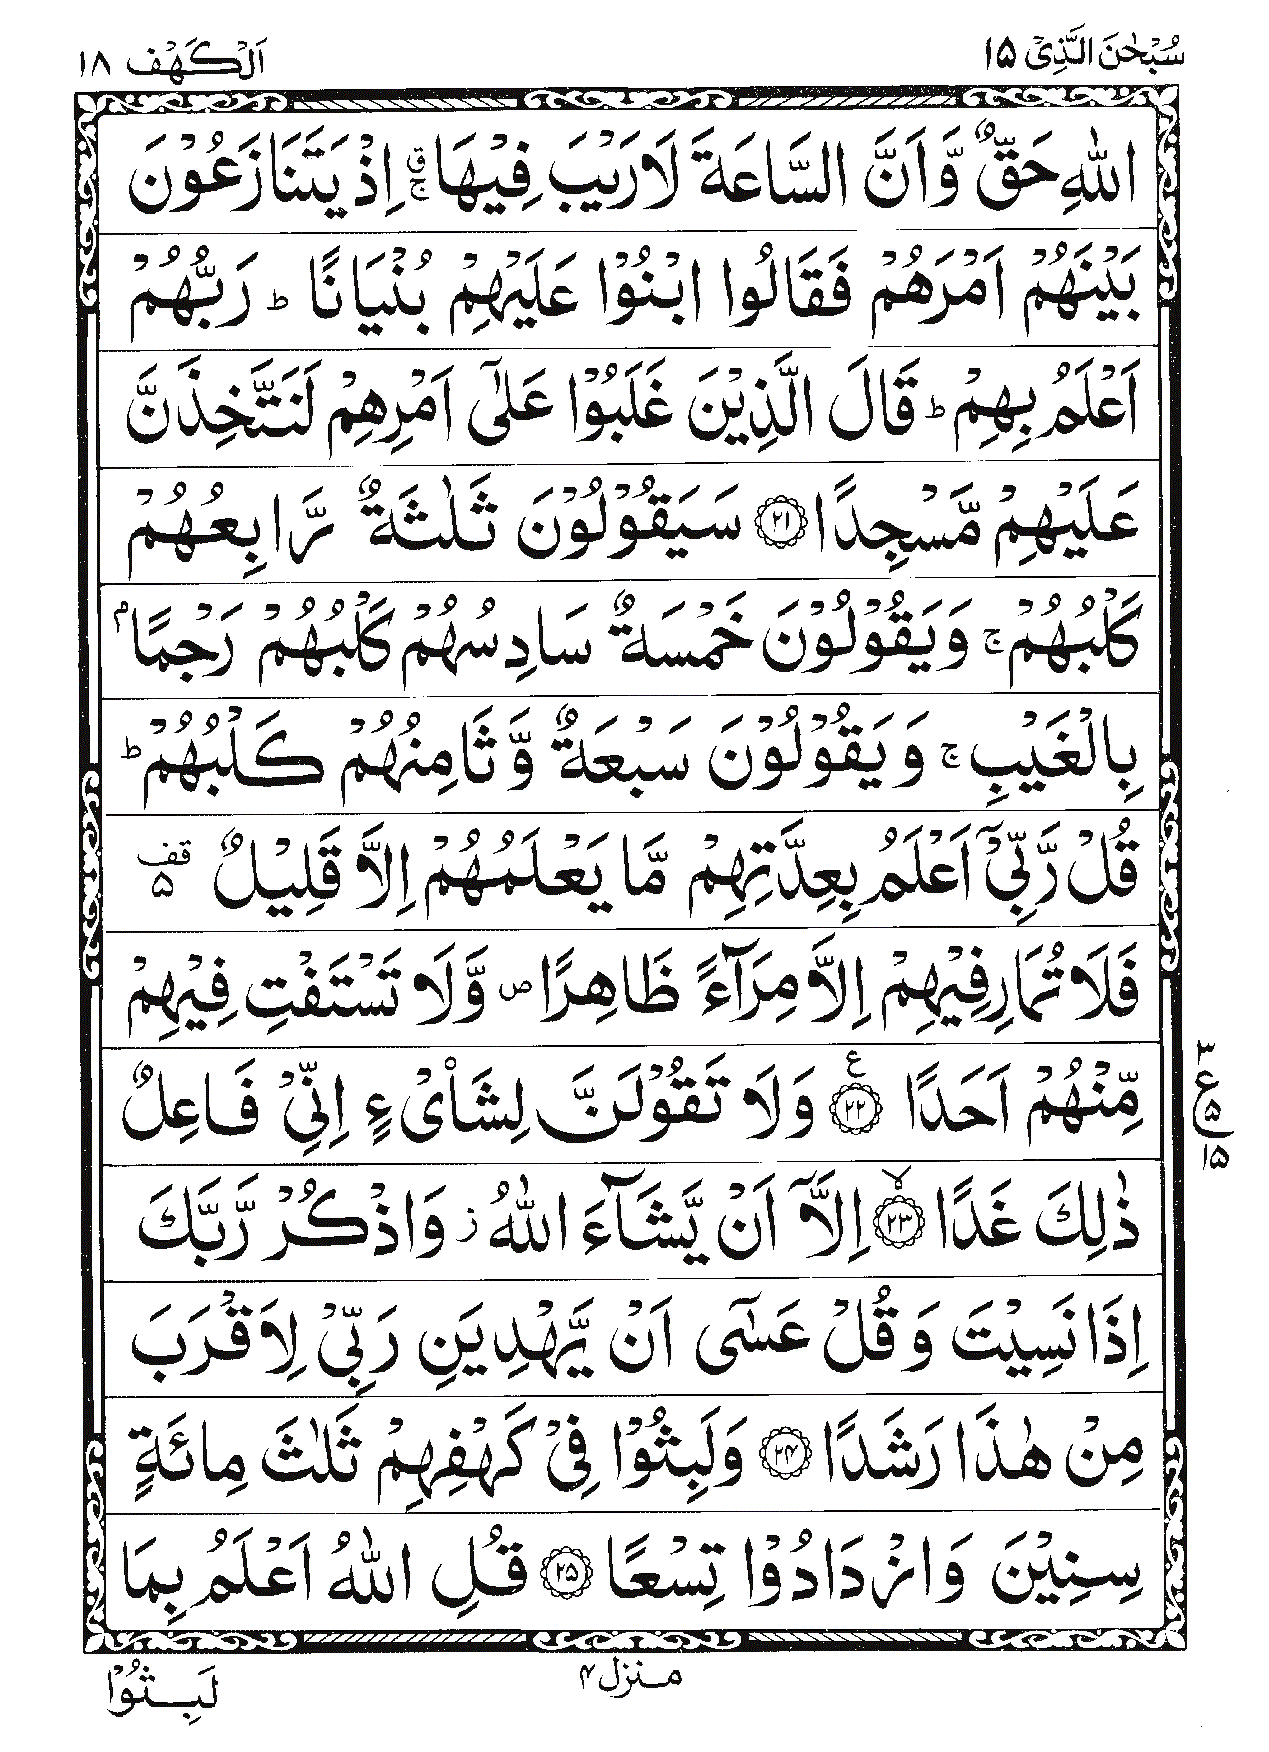 سُبْحٰنَ الَّذِیْۤ ١٥
اَلْكَهْف ١٨
اللّٰهِ حَقٌّ وَّاَنَّ السَّاعَةَ لَارَیْبَ فِیْهَا ۚۗ اِذْ یَتَنَازَعُوْنَ
بَیْنَهُمْ اَمْرَهُمْ فَقَالُوا ابْنُوْا عَلَیْهِمْ بُنْیَانًا ؕ رَبُّهُمْ
اَعْلَمُ بِهِمْ ؕ قَالَ الَّذِیْنَ غَلَبُوْا عَلٰۤی اَمْرِهِمْ لَنَتَّخِذَنَّ
عَلَیْهِمْ مَّسْجِدًا ﴿٢١﴾ سَیَقُوْلُوْنَ ثَلٰثَةٌ رَّابِعُهُمْ
كَلْبُهُمْ ۚ وَیَقُوْلُوْنَ خَمْسَةٌ سَادِسُهُمْ كَلْبُهُمْ رَجْمًۢا
بِالْغَیْبِ ۚ وَیَقُوْلُوْنَ سَبْعَةٌ وَّثَامِنُهُمْ كَلْبُهُمْ ؕ
قُلْ رَّبِّیْۤ اَعْلَمُ بِعِدَّتِهِمْ مَّا یَعْلَمُهُمْ اِلَّا قَلِیْلٌ قف ۵
فَلَا تُمَارِ فِیْهِمْ اِلَّا مِرَآءً ظَاهِرًا ص وَّلَا تَسْتَفْتِ فِیْهِمْ
مِّنْهُمْ اَحَدًا ﴿٢٢﴾ ع وَلَا تَقُوْلَنَّ لِشَایْءٍ اِنِّیْ فَاعِلٌ
٣ ع ۵ ١۵
ذٰلِكَ غَدًا ﴿٢٣﴾ لا اِلَّاۤ اَنْ یَّشَآءَ اللّٰهُ ز وَاذْكُرْ رَّبَّكَ
اِذَا نَسِیْتَ وَقُلْ عَسٰۤی اَنْ یَّهْدِیَنِ رَبِّیْ لِاَقْرَبَ
مِنْ هٰذَا رَشَدًا ﴿٢۴﴾ وَلَبِثُوْا فِیْ كَهْفِهِمْ ثَلٰثَ مِائَةٍ
سِنِیْنَ وَازْدَادُوْا تِسْعًا ﴿٢۵﴾ قُلِ اللّٰهُ اَعْلَمُ بِمَا
منزل ۴
لَبِثُوْا